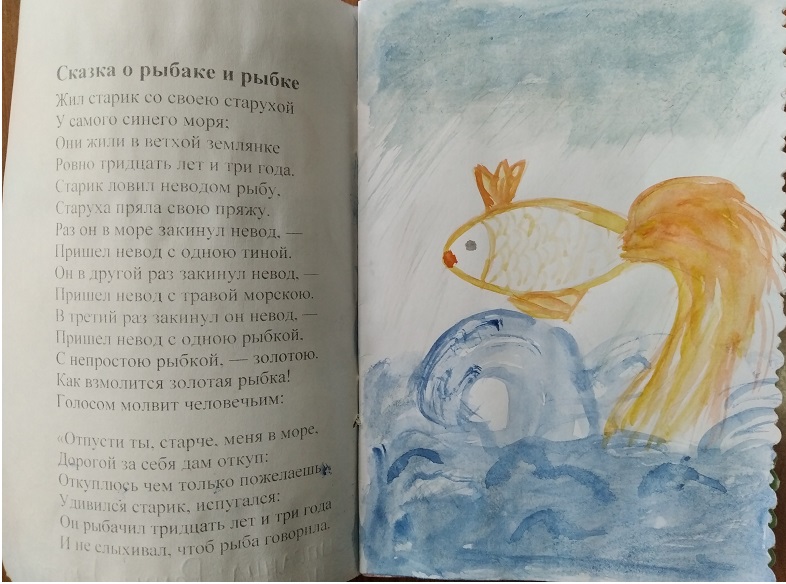 Сказка о рыбаке и рыбке
Жил старик со своею старухой
У самого синего моря;
Они жили в ветхой землянке
Ровно тридцать лет и три года.
Старик ловил неводом рыбу,
Старуха пряла свою пряжу.
Раз он в море закинул невод, —
Пришел невод с одною тиной.
Он в другой раз закинул невод, —
Пришел невод с травой морскою.
В третий раз закинул он невод, —
Пришел невод с одною рыбкой,
С непростою рыбкой, — золотою.
Как взмолится золотая рыбка!
Голосом молвит человечьим:
«Отпусти ты, старче, меня в море,
Дорогой за себя дам откуп:
Откуплюсь чем только пожелаешь»
Удивился старик, испугался:
Он рыбачил тридцать лет и три года
И не слыхивал, чтоб рыба говорила.